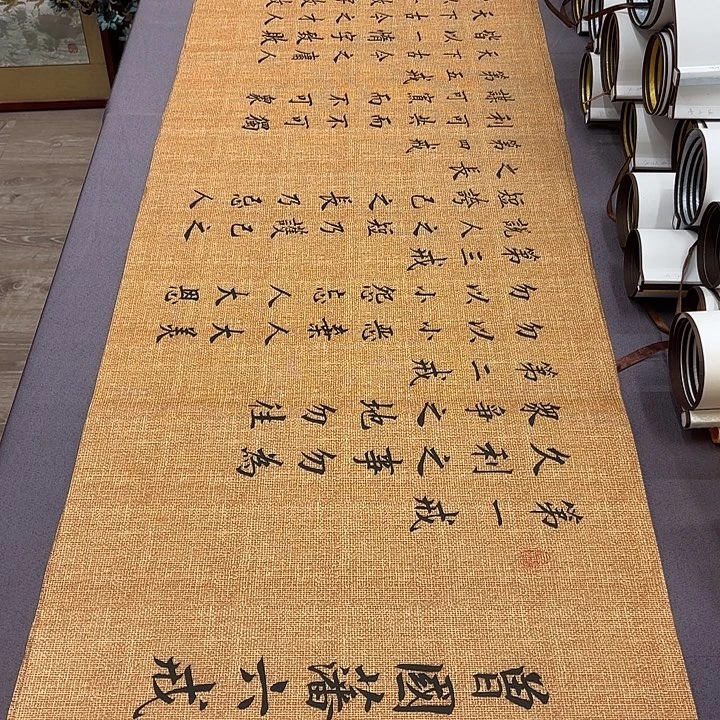 曾國藩六戒
第一戒
久利之事勿為
眾爭之地勿往
第二戒
勿以小惡棄人大美
勿以小怨忘人大恩
第三戒
說人之短乃護己之
短誇己之長乃忌人
之長
第四戒
利可共而不可獨
謀可寡而不可眾
第五戒
天下古今之庸人
皆以一惰字致敗
天下古今之才人